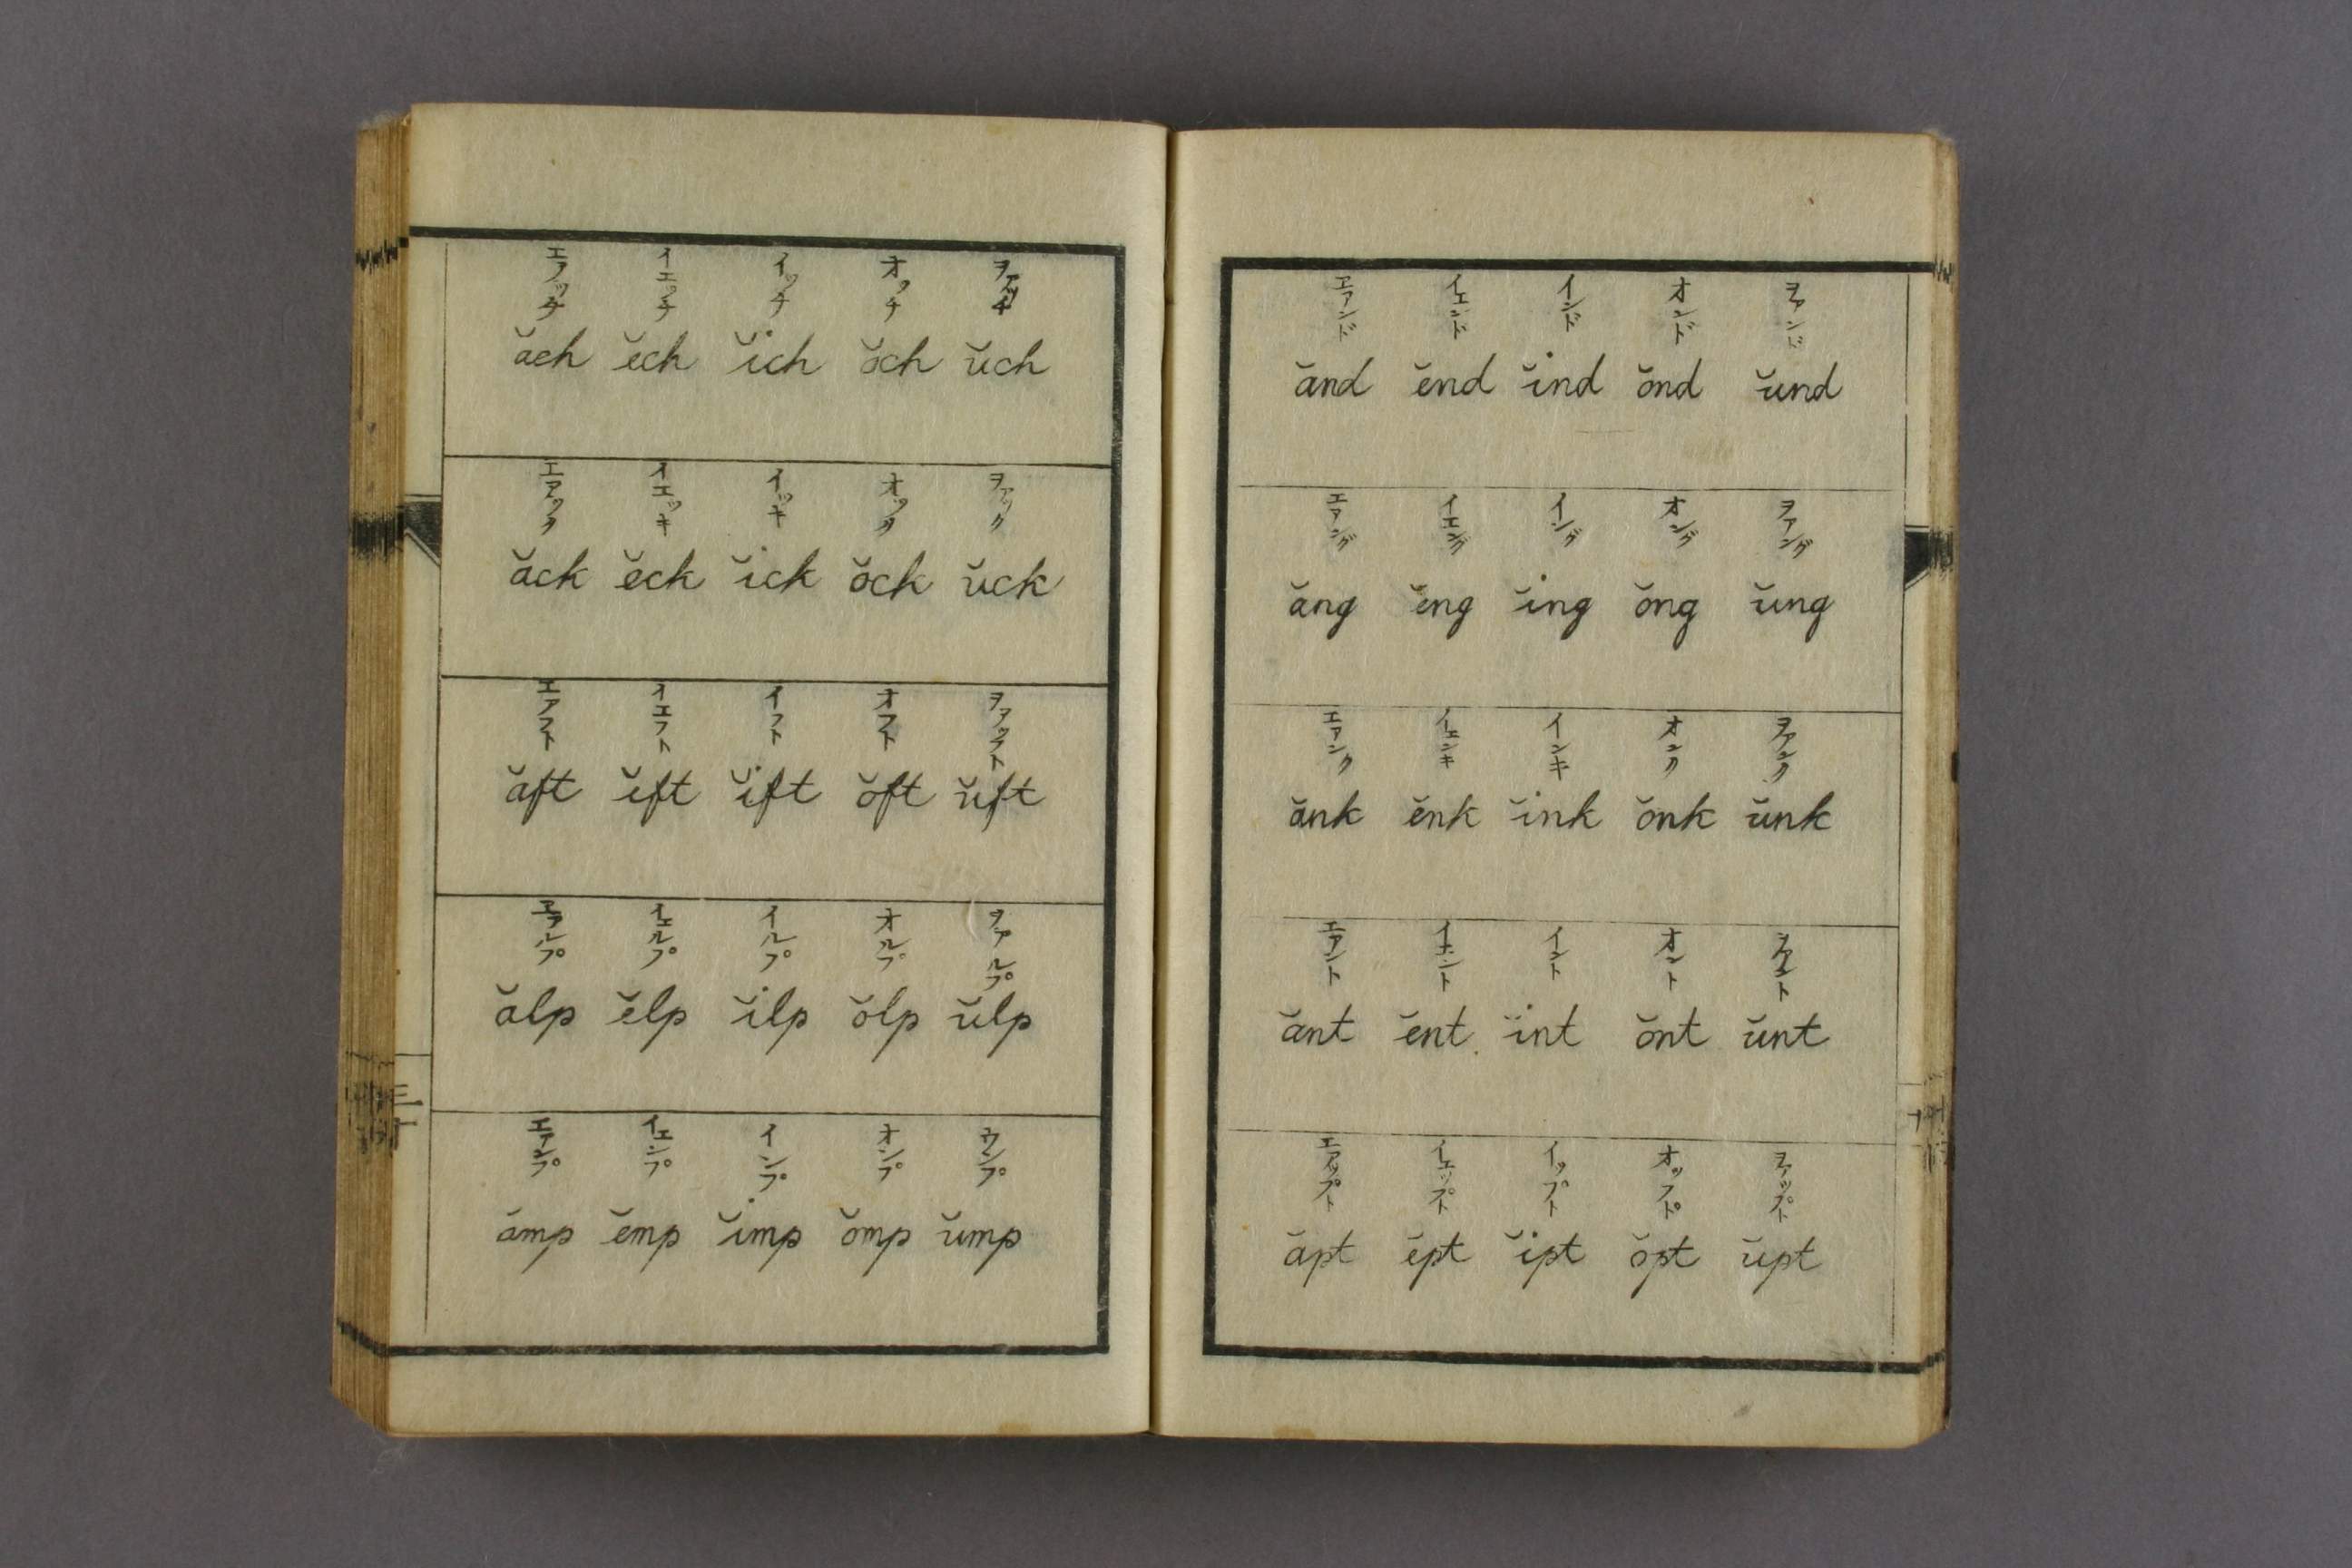 エアッチ イエッチ イッチ オッチ ヲアッチ
ăch ĕch ĭch ŏch ŭch
エアック イエッキ イッキ オック ヲアック
ăck ĕck ĭck ŏck ŭck
エアフト イエフト イフト オフト ヲアッフト
ăft ĭft ĭft ŏft ŭft
エアルプ イエルプ イルプ オルプ ヲアルプ
ălp ĕlp ĭlp ŏlp ŭlp
エアンプ イエンプ インプ オンプ ウンプ
ămp ĕmp ĭmp ŏmp ŭmp
エアンド イエンド インド オンド ヲアンド
ănd ĕnd ĭnd ŏnd ŭnd
エアング イエング イング オング ヲアング
ăng ĕng ĭng ŏng ŭng
エアンク イエンキ インキ オンク ヲアンク
ănk ĕnk ĭnk ŏnk ŭnk
エアント イエント イント オント ヲアント
ănt ĕnt ĭnt ŏnt ŭnt
エアップト イエップト イップト オップト ヲアップト
ăpt ĕpt ĭpt ŏpt ŭpt